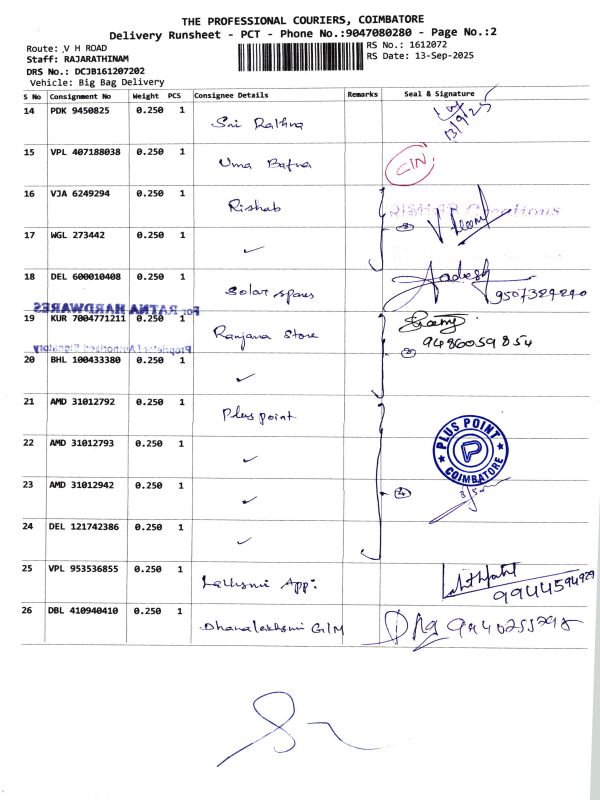 THE PROFESSIONAL COURIERS, COIMBATORE
Delivery Runsheet - PCT - Phone No.:9047080280 - Page No.:2
Route: V H ROAD
RS No.: 1612072
Staff: RAJARATHINAM
RS Date: 13-Sep-2025
DRS No.: DCJB161207202
Vehicle: Big Bag Delivery
S No Consignment No Weight PCS Consignee Details Remarks Seal & Signature
14 PDK 9450825 0.250 1 Sri Rathna 13/9/25
15 VPL 407188038 0.250 1 Uma Bafna CIN
16 VJA 6249294 0.250 1 Rishab
17 WGL 273442 0.250 1 ✓
18 DEL 600010408 0.250 1 Solar spares Aadesh
For RATNA HARDWARES
19 KUR 7004771211 0.250 1 Ranjana Store
9486059854
Proprietor / Authorised Signatory
20 BHL 100433380 0.250 1 ✓
21 AMD 31012792 0.250 1 Plus point
22 AMD 31012793 0.250 1 ✓
PLUS POINT
P
COIMBATORE
23 AMD 31012942 0.250 1 ✓
24 DEL 121742386 0.250 1 ✓
25 VPL 953536855 0.250 1 Lakhsmi App:
9944594929
26 DBL 410940410 0.250 1 Dhanalakhsmi G/M